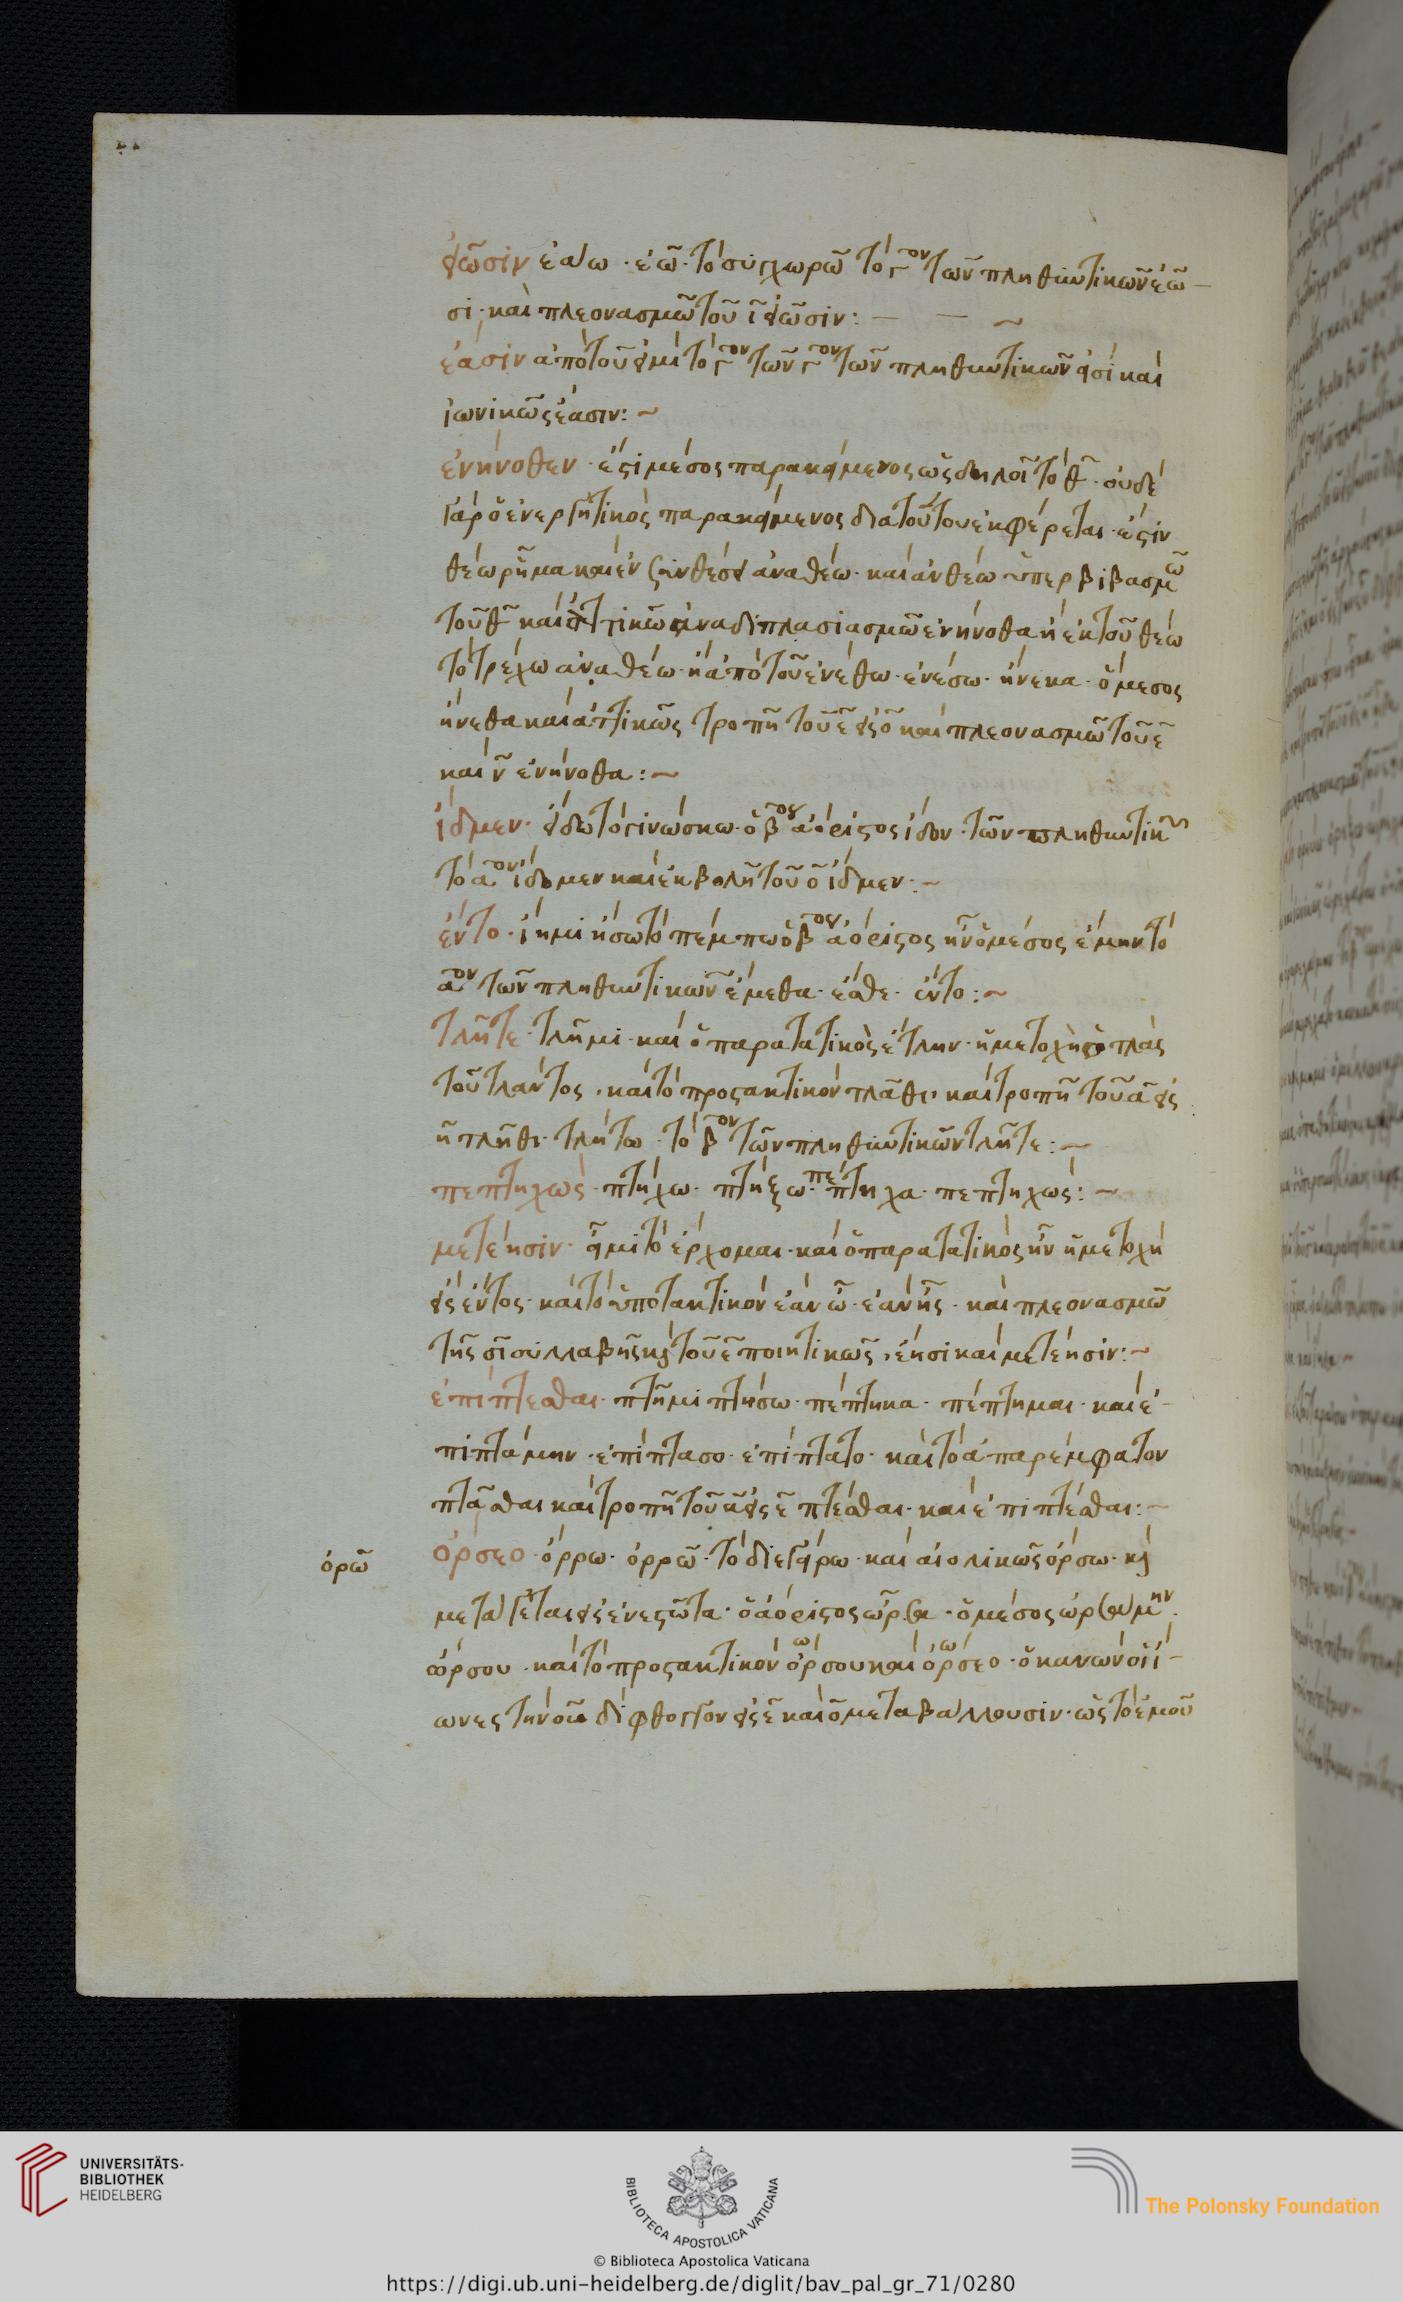 εἰῶσιν ἐάω · ἐῶ · τὸ συγχωρῶ τὸ γ̅ον τῶν πληθυντικῶν ἐῶ-
σι · καὶ πλεονασμῶ τοῦ ῑ εἰῶσιν :
ἔασιν ἀπὸ τοῦ εἰμὶ τὸ γ̅ον τῶν γ̅ον τῶν πληθυντικῶν εἰσὶ καὶ
ἰωνικῶς ἔασιν :~
ἐνήνοθεν · ἔστι μέσος παρακείμενος ὡς δηλοῖ τὸ θ̅ · οὐδὲ
γὰρ ὁ ἐνεργητικὸς παρακείμενος διὰ τούτου ἐκφέρεται · ἔστιν
θέω ῥῆμα καὶ ἐν συνθέσει ἀναθέω · καὶ ἀνθέω ὑπερβιβασμῶ
τοῦ θ̅ καὶ ἀττικῶ ἀναδιπλασιασμῶ ἐνήνοθα ἢ ἐκ τοῦ θέω
τὸ τρέχω ἀναθέω · ἢ ἀπὸ τοῦ ἐνέθω · ἐνέσω · ἤνεκα · ὁ μέσος
ἤνεθα καὶ ἀττικῶς τροπῆ τοῦ ε̅ εἰς ο̅ καὶ πλεονασμῶ τοῦ ε̅
καὶ ν̅ ἐνήνοθα :~
ἴδμεν · εἴδω τὸ γινώσκω · ὁ β̅ος ἀόριστος ἴδον · τῶν πληθυντικῶν
τὸ α̅ον ἴδομεν καὶ ἐκβολῆ τοῦ ο̅ ἴδμεν :~
ἕντο · ἵημι ἥσω τὸ πέμπω ὁ β̅ος ἀόριστος ἦν ὁ μέσος ἕμην τὸ
α̅ον τῶν πληθυντικῶν ἕμεθα · ἕσθε · ἕντο :~
τλῆτε · τλῆμι · καὶ ὁ παρατατικὸς ἔτλην · ἡ μετοχὴ ὁ τλὰς
τοῦ τλάντος · καὶ τὸ προστακτικὸν τλᾶθι · καὶ τροπῆ τοῦ α̅ εἰς
η̅ τλῆθι · τλήτω · τὸ β̅ον τῶν πληθυντικῶν τλῆτε :~
πεπτηχώς · πτήχω · πτήξω · πέπτηχα · πεπτηχώς :~
μετέησιν · εἶμι τὸ ἔρχομαι · καὶ ὁ παρατατικὸς ἦν ἡ μετοχὴ
εἲς ἔντος · καὶ τὸ ὑποτακτικὸν ἐὰν ὦ · ἐὰν ἦς · καὶ πλεονασμῶ
τῆς σι συλλαβῆς καὶ τοῦ ε̅ ποιητικῶς · ἔησι καὶ μετέησιν :~
ἐπίπτεσθαι · πτῆμι πτήσω · πέπτηκα · πέπτημαι · καὶ ἐ-
πιπτάμην · ἐπίπτασο · ἐπίπτατο · καὶ τὸ ἀπαρέμφατον
πτᾶσθαι καὶ τροπῆ τοῦ α̅ εἰς ε̅ πτέσθαι · καὶ ἐπιπτέσθαι :~
ὄρσεο · ὄρρω · ὀρρῶ · τὸ διεγείρω · καὶ αἰολικῶς ὄρσω · καὶ
ὀρῶ
μετάγεται εἰς ἐνεστῶτα · ὁ ἀόριστος ὦρσα · ὁ μέσος ὠρσάμην ·
ὤρσου · καὶ τὸ προστακτικὸν ὄρσου καὶ ὄρσεο · ὁ κανών οἱ ἴ-
ωνες τὴν ου δίφθογγον εἰς ε̅ καὶ ο̅ μεταβάλλουσιν · ὡς τὸ ἐμοῦ
UNIVERSITÄTS-
BIBLIOTHEK
HEIDELBERG
BIBLIOTECA APOSTOLICA VATICANA
The Polonsky Foundation
© Biblioteca Apostolica Vaticana
https://digi.ub.uni-heidelberg.de/diglit/bav_pal_gr_71/0280